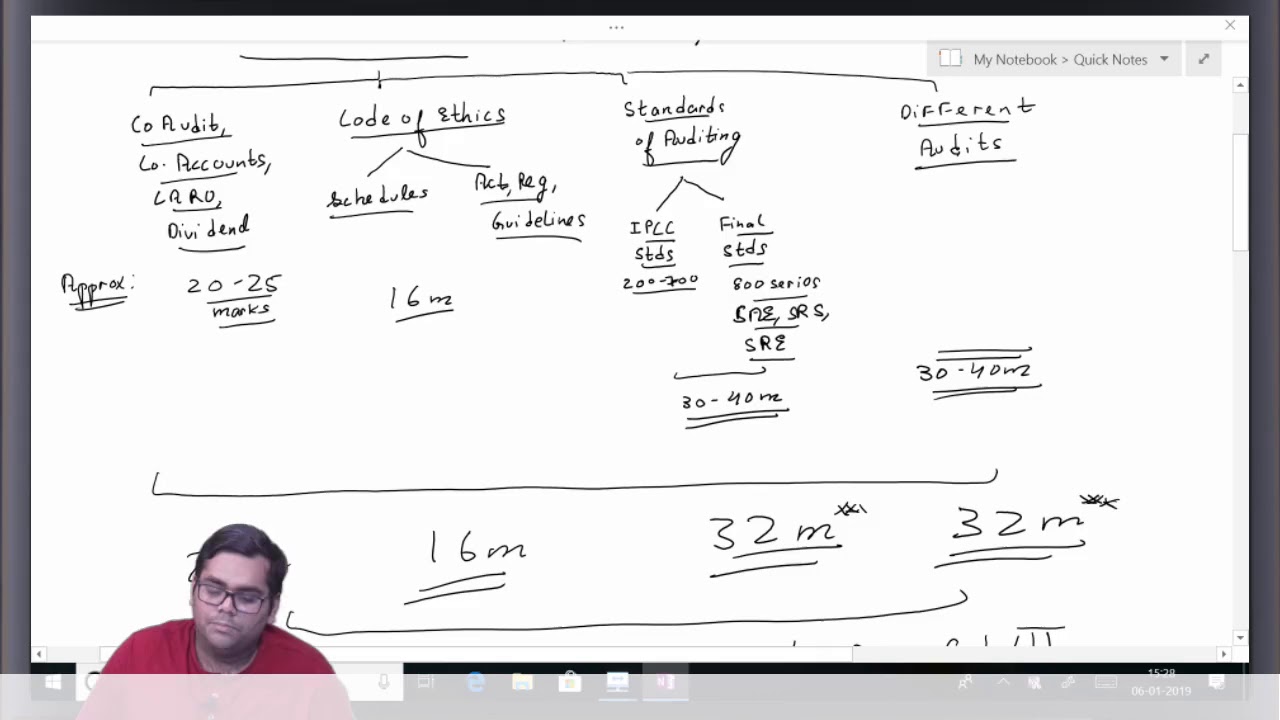 My Notebook > Quick Notes
Co Audit,
Co. Accounts,
CARO,
Dividend
Code of Ethics
Schedules
Act, Reg,
Guidelines
Standards
of Auditing
IPCC
Stds
200-700
Final
Stds
800 series
SAE, SRS,
SRE
Different
Audits
Approx:
20-25
marks
16m
30-40m
30-40m
16m
32m
32m
III
15:28
06-01-2019